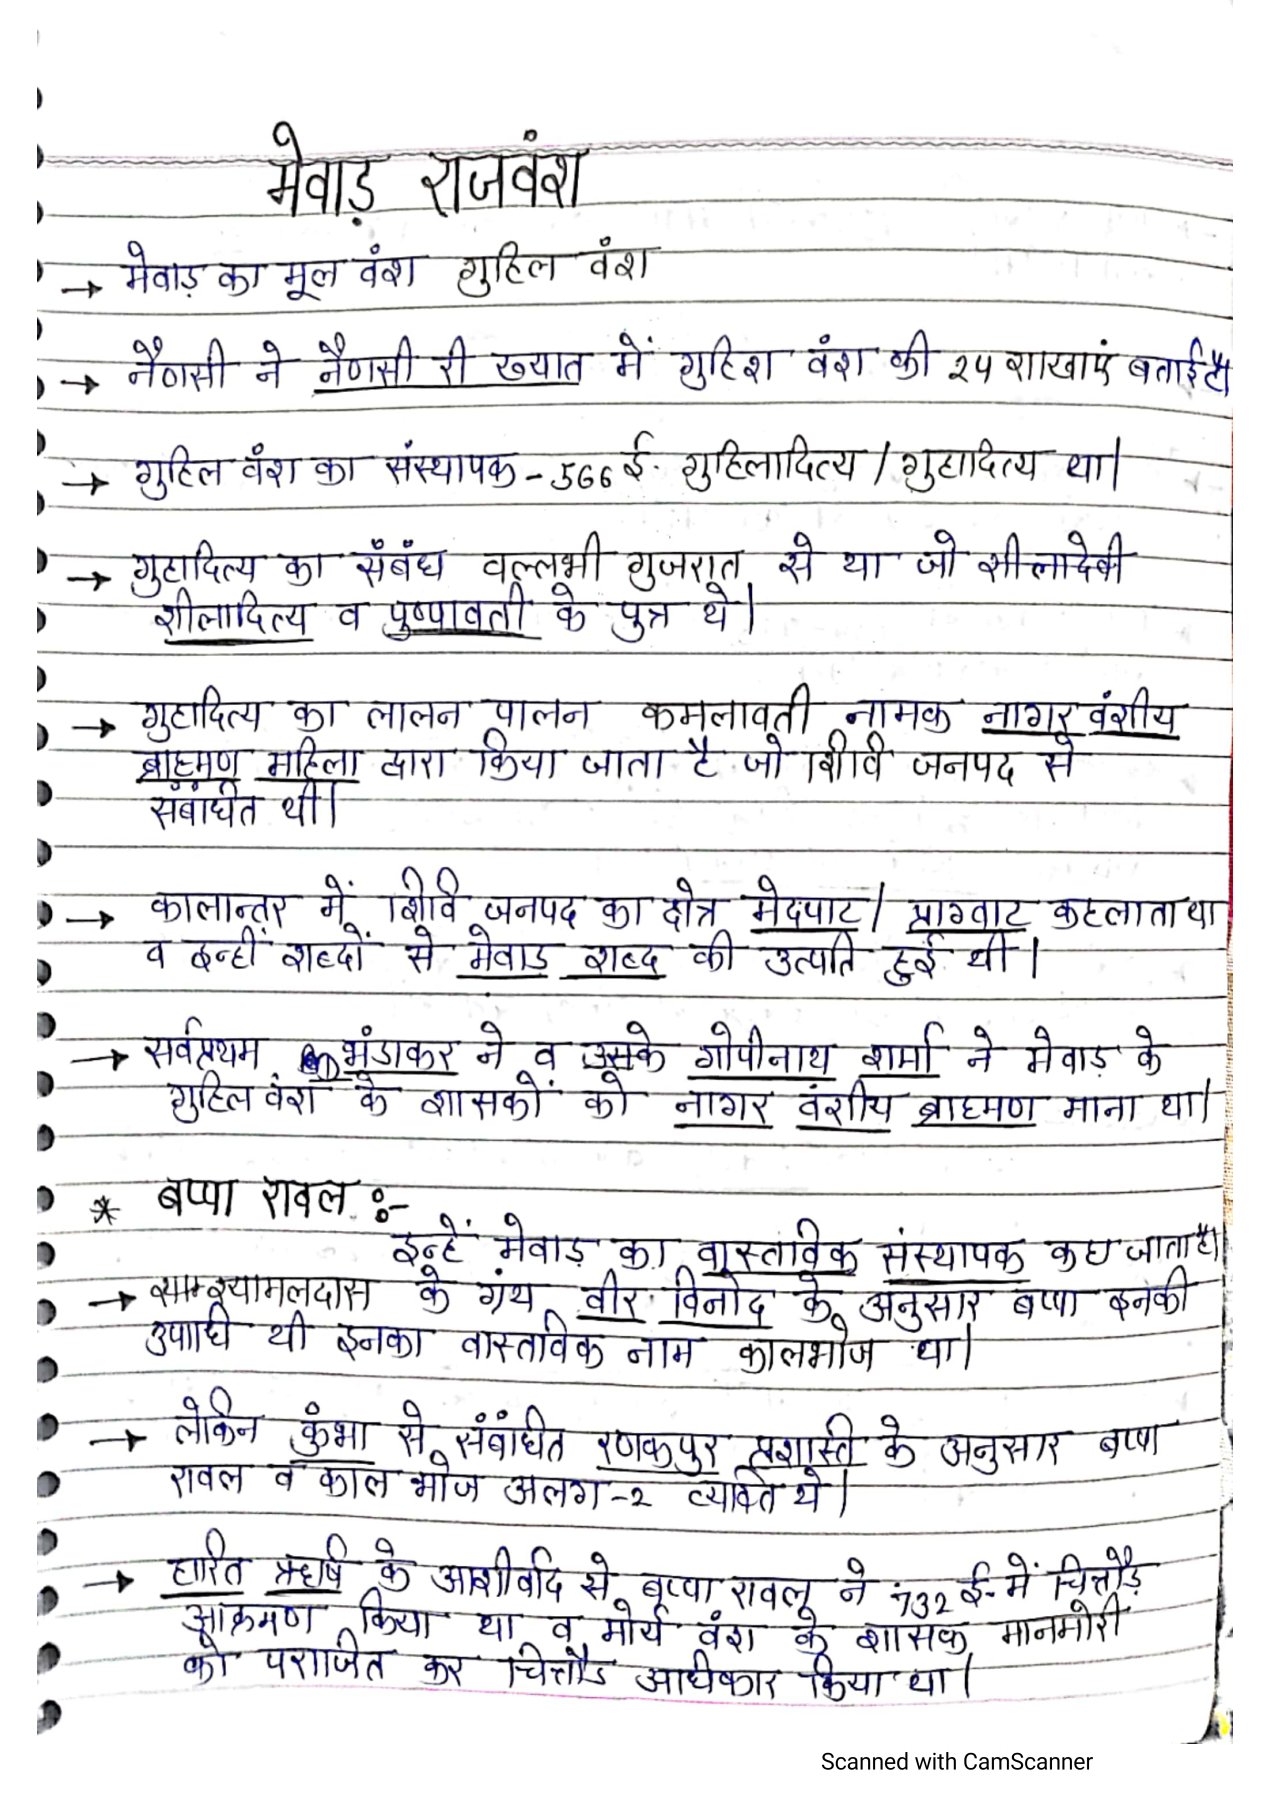 मेवाड़ राजवंश
→ मेवाड़ का मूल वंश गुहिल वंश
→ नैणसी ने नैणसी री ख्यात में गुहिश वंश की 24 शाखाएं बताई है।
→ गुहिल वंश का संस्थापक - 566 ई. गुहिलादित्य / गुहादित्य था।
→ गुहादित्य का संबंध वल्लभी गुजरात से था जो शीलादेवी
शीलादित्य व पुष्पावती के पुत्र थे।
→ गुहादित्य का लालन पालन कमलावती नामक नागर वंशीय
ब्राह्मण महिला द्वारा किया जाता है जो शिवि जनपद से
संबंधित थी।
→ कालान्तर में शिवि जनपद का क्षेत्र मेदपाट / प्राग्वाट कहलाता था
व इन्ही शब्दों से मेवाड शब्द की उत्पति हुई थी।
→ सर्वप्रथम भंडाकर ने व उसके गोपीनाथ शर्मा ने मेवाड़ के
गुहिल वंश के शासकों को नागर वंशीय ब्राह्मण माना था।
* बप्पा रावल :-
इन्हें मेवाड़ का वास्तविक संस्थापक कहा जाता है।
→ श्यामलदास के ग्रंथ वीर विनोद के अनुसार बप्पा इनकी
उपाधि थी इनका वास्तविक नाम कालभोज था।
→ लेकिन कुंभा से संबंधित रणकपुर प्रशास्ति के अनुसार बप्पा
रावल व काल भोज अलग-2 व्यक्ति थे।
→ हारित ऋषि के आशीर्वाद से बप्पा रावल ने 732 ई. में चित्तौड़
आक्रमण किया था व मोर्य वंश के शासक मानमोरी
को पराजित कर चित्तौड अधिकार किया था।
Scanned with CamScanner